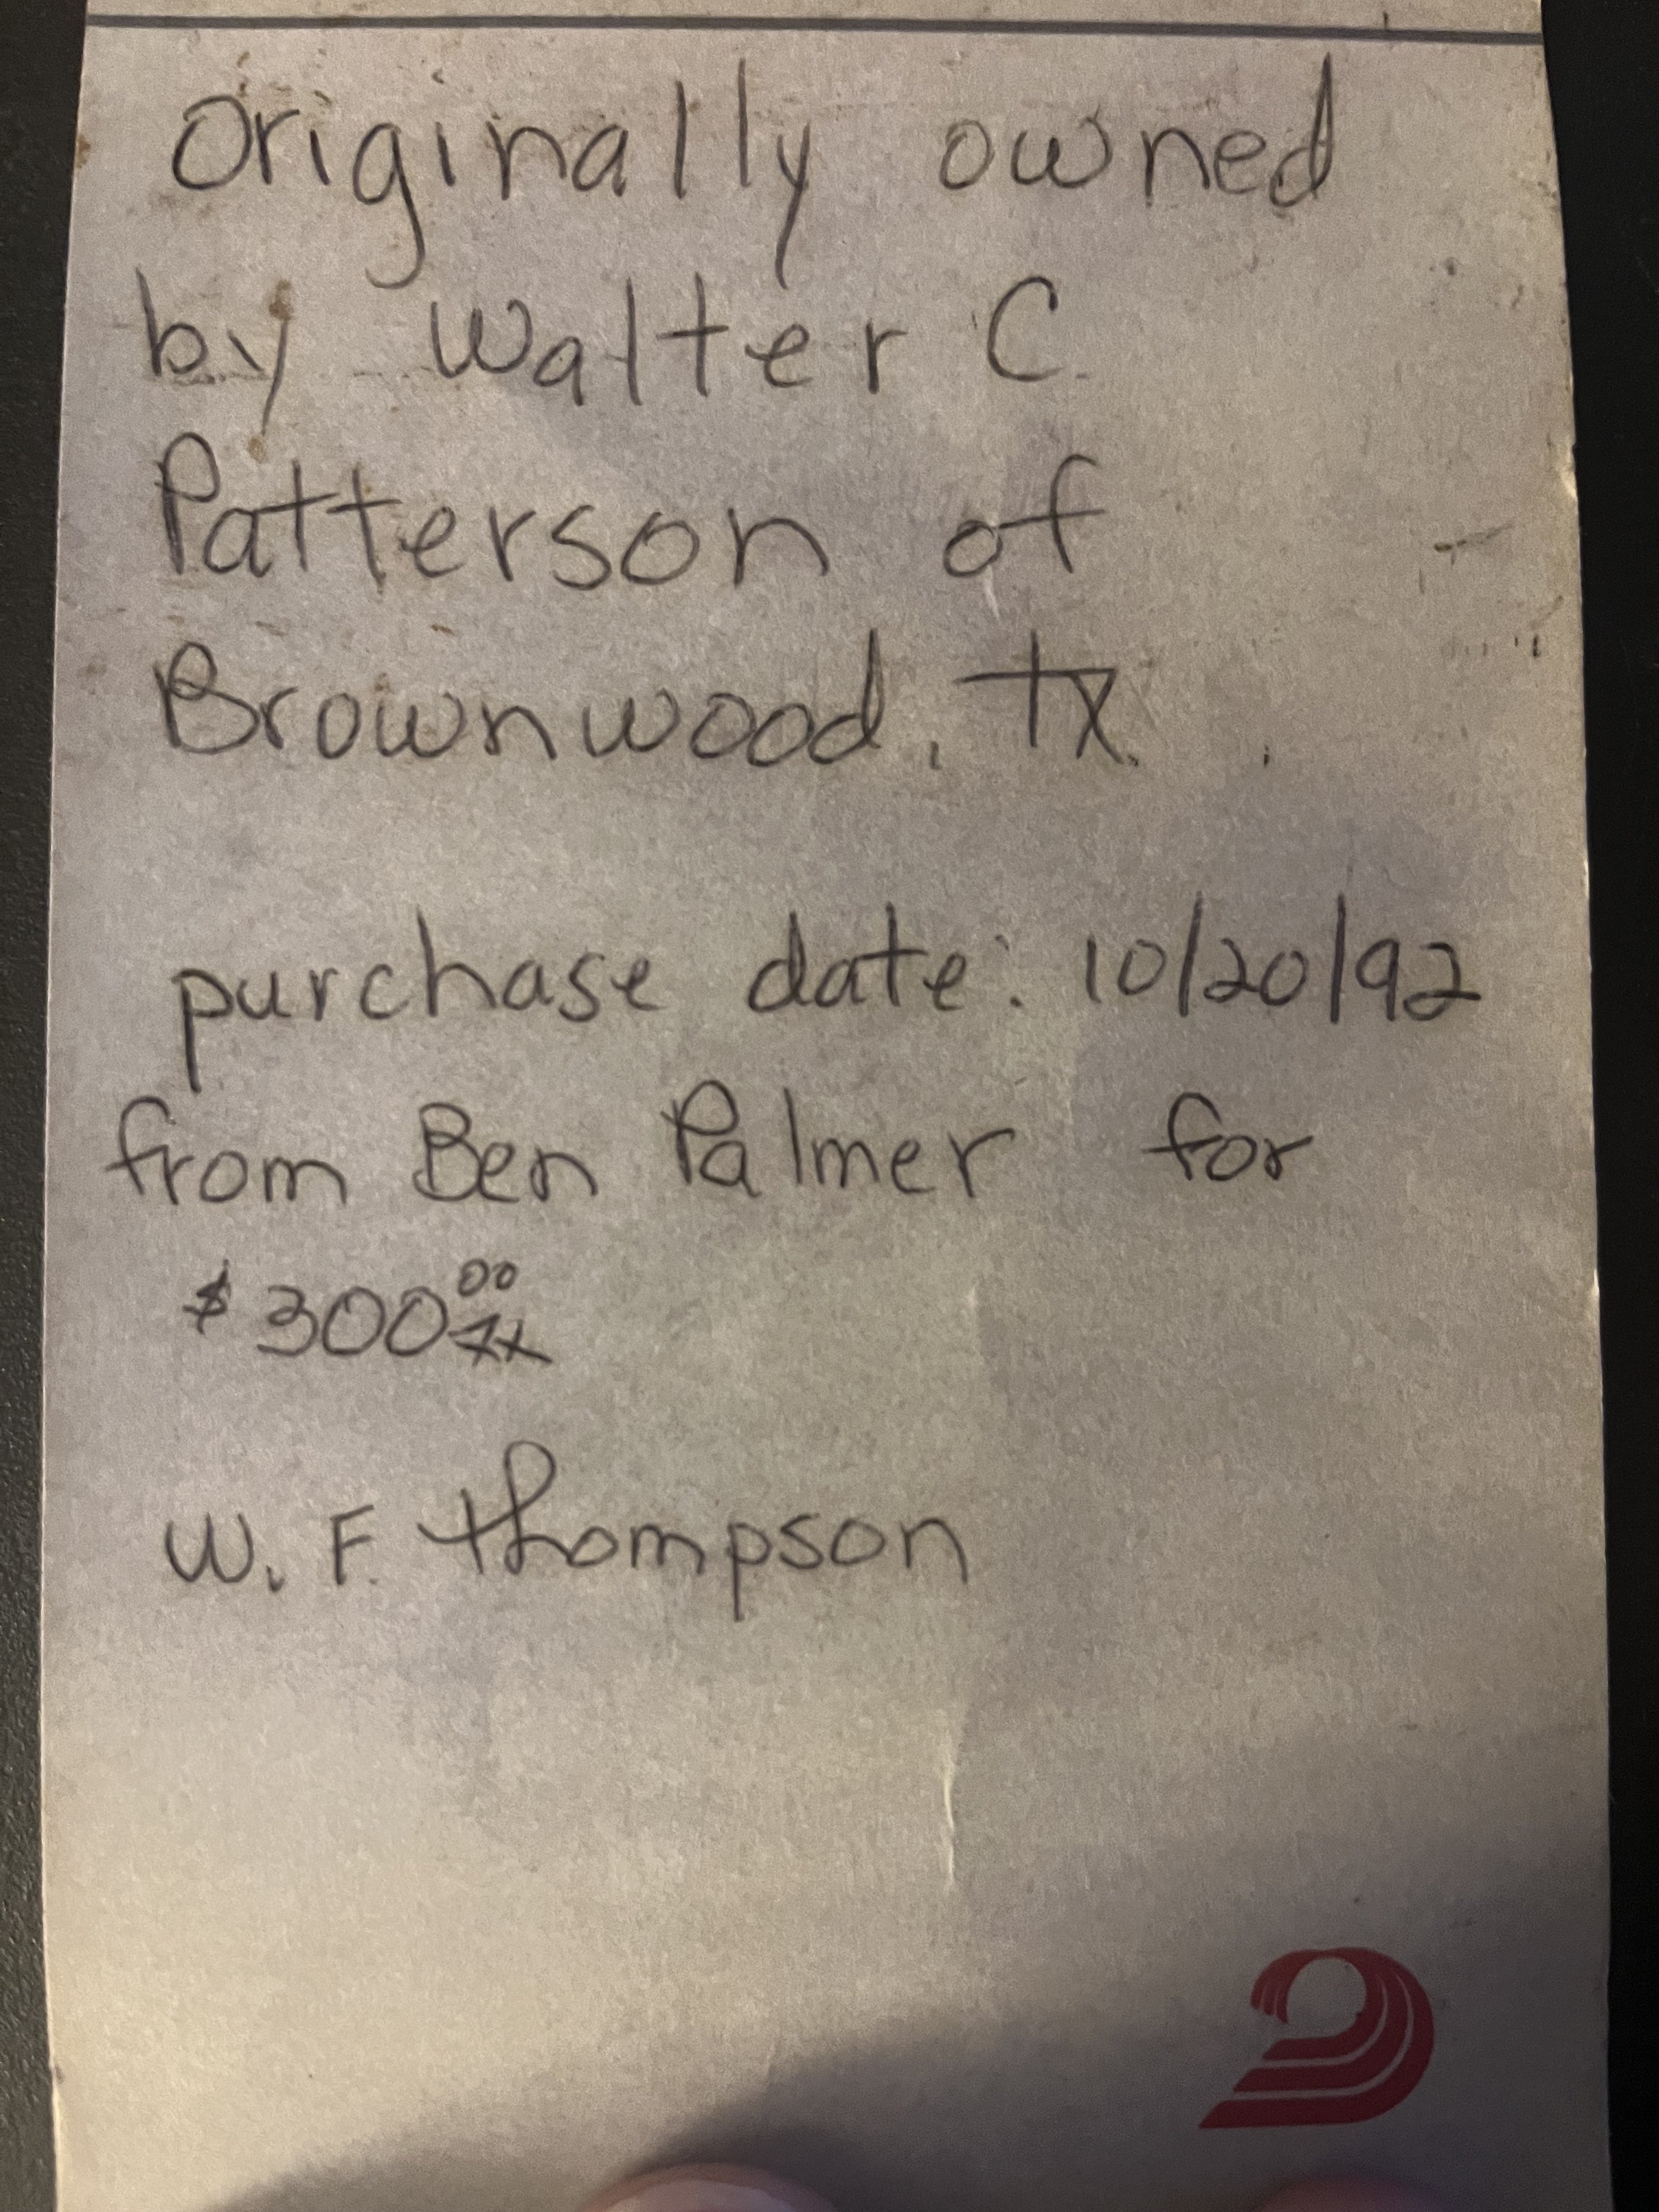 Originally owned
by Walter C.
Patterson of
Brownwood, Tx.
purchase date: 10/20/92
from Ben Palmer for
$300 00/xx
W. F. Thompson